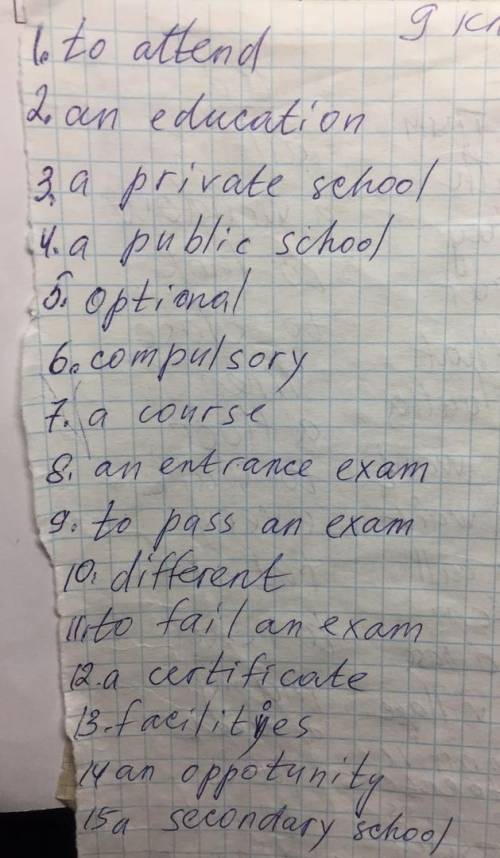 9 кл
1. to attend
2. an education
3. a private school
4. a public school
5. optional
6. compulsory
7. a course
8. an entrance exam
9. to pass an exam
10. different
11. to fail an exam
12. a certificate
13. facilities
14 an oppotunity
15 a secondary school